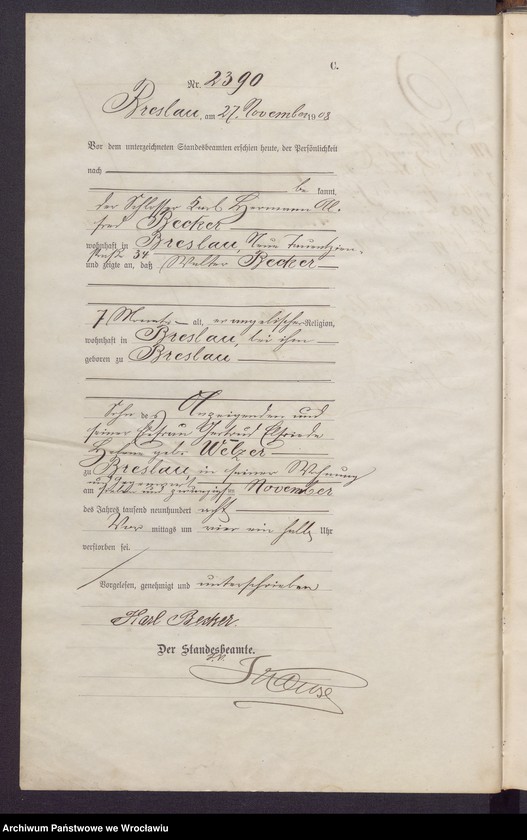 C.
Nr. 2390
Breslau, am 27. November 1908
Vor dem unterzeichneten Standesbeamten erschien heute, der Persönlichkeit
nach
be kannt,
der Schlosser Karl Hermann Al-
fred Becker
wohnhaft in Breslau, Neue Tauentzien-
straße 34
und zeigte an, daß Walter Becker
7 Monate alt, evangelischer Religion,
wohnhaft in Breslau, bei ihm
geboren zu Breslau
Sohn des Anzeigenden und
seiner Ehefrau Gertrud Elfriede
Helene geb. Welzer
zu Breslau in seiner Wohnung
am sieben und zwanzigsten November
des Jahres tausend neunhundert acht
Vor mittags um vier ein halb Uhr
verstorben sei.
Vorgelesen, genehmigt und unterschrieben
Karl Becker.
Der Standesbeamte.
I.V.
Archiwum Państwowe we Wrocławiu